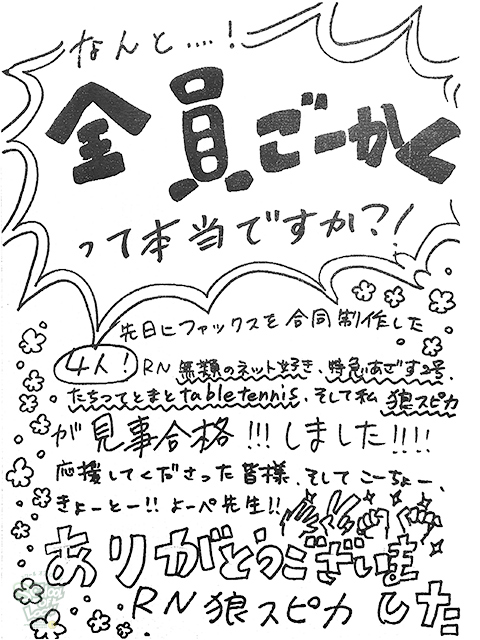 なんと....!
全員ごーかく
って本当ですか?!
先日にファックスを合同制作した
4人! RN 無類のネット好き、特急あざす2号、
たちつてとまとtable tennis、そして私 狼スピカ
が見事合格!!!しました!!!!
応援してくださった皆様、そしてこーちょー、
きょーとー!! よーぺ先生!!
ありがとうございま
した
RN 狼スピカ